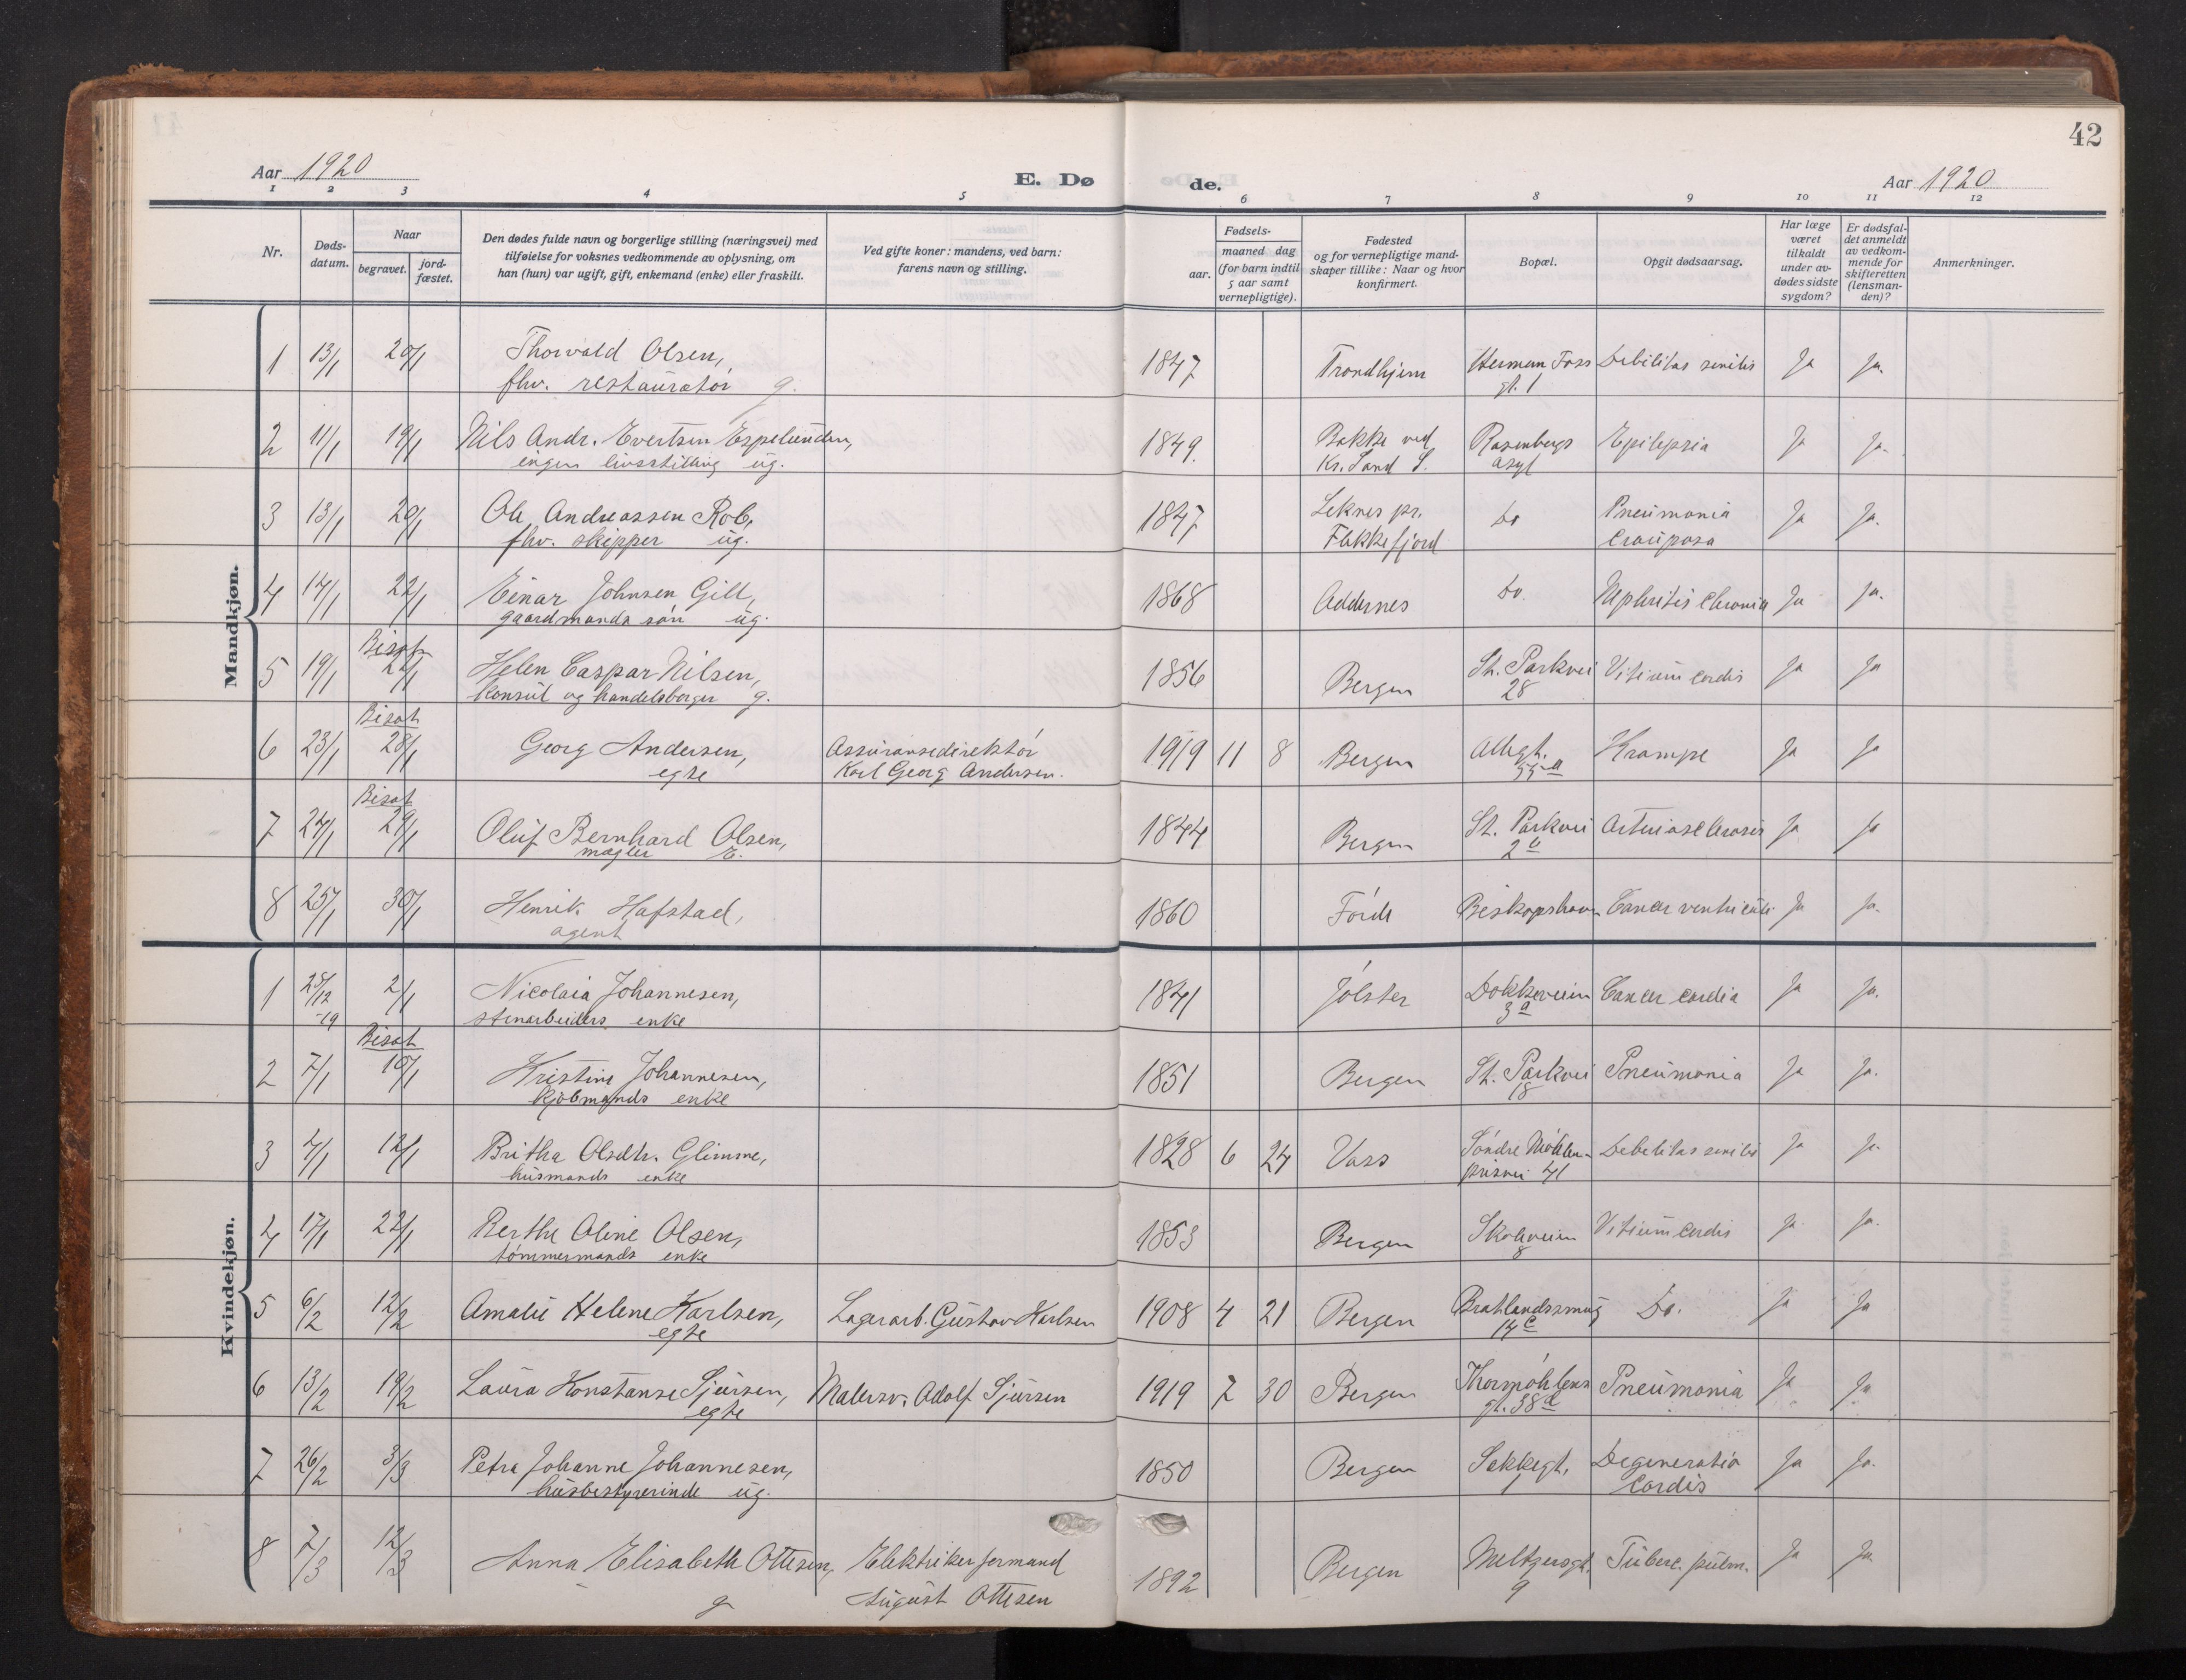 42
Aar 1920
E. Dø
de.
Aar 1920
1 2 3 4 5 6 7 8 9 10 11 12
Nr.
Døds-
datum.
Naar
begravet.
jord-
fæstet.
Den dødes fulde navn og borgerlige stilling (næringsvei) med
tilføielse for voksnes vedkommende av oplysning, om
han (hun) var ugift, gift, enkemand (enke) eller fraskilt.
Ved gifte koner: mandens, ved barn:
farens navn og stilling.
Fødsels-
aar.
maaned dag
(for barn indtil
5 aar samt
vernepligtige).
Fødested
og for vernepligtige mand-
skaper tillike: Naar og hvor
konfirmert.
Bopæl.
Opgit dødsaarsag.
Har læge
været
tilkaldt
under av-
dødes sidste
sygdom?
Er dødsfal-
det anmeldt
av vedkom-
mende for
skifteretten
(lensman-
den)?
Anmerkninger.
Mandkjøn.
1 13/1 20/1 Thorvald Olsen, 1847 Trondhjem Herman Foss Debilitas senilis Ja Ja.
fhv. restauratør g. gt. 1
2 11/1 19/1 Nils Andr. Evertsen Espelunden, 1849 Bakke ved Rosenbergs Epilepsia Ja Ja.
ingen livsstilling ug. Kr. Sand S. asyl
3 13/1 20/1 Ole Andreassen Rob, 1847 Leknes pr. Do Pneumonia Ja Ja.
fhv. skipper ug. Flekkefjord Crouposa
4 14/1 22/1 Einar Johnsen Gill, 1868 Addernes Do. Nephritis Chronica Ja Ja.
gaardmands søn ug.
Bisat
5 19/1 24/1 Helen Caspar Nilsen, 1856 Bergen St. Parkvei Vitium Cordis Ja Ja
Konsul og handelsborger g. 28
Bisat
6 23/1 28/1 Georg Andersen, Assuransedirektør 1919 11 8 Bergen Allegt. Krampe Ja Ja
egte Karl Georg Andersen. 55a
Bisat
7 24/1 29/1 Oluf Bernhard Olsen, 1844 Bergen St. Parkvei Arteriosclerosis Ja Ja
mægler E. 2b
8 25/1 30/1 Henrik Hafstad, 1860 Førde Biskopshavn Cancer ventriculi Ja Ja.
agent
Kvindekjøn.
1 28/12 2/1 Nicolaia Johannesen, 1841 Jølster Dokkeveien Cancer cardia Ja Ja.
-19 stenarbeiders enke 3a
Bisat
2 7/1 10/1 Kristine Johannesen, 1851 Bergen St. Parkvei Pneumonia Ja Ja.
kjøbmands enke 18
3 4/1 12/1 Britha Olsdtr. Glimme, 1828 6 24 Voss Søndre Møhlen- Debilitas senilis Ja Ja.
husmands enke prisvei 41
4 17/1 22/1 Berthe Oline Olsen, 1853 Bergen Skoleveien Vitium Cordis Ja Ja.
tømmermands enke 8
5 6/2 12/2 Amalie Helene Karlsen, Lagerarb. Gustav Karlsen 1908 4 21 Bergen Bratlandssmug Do. Ja Ja
egte 14c
6 13/2 19/2 Laura Konstanse Sjursen, Malersv. Adolf Sjursen 1919 7 30 Bergen Thormøhlens Pneumonia Ja Ja
egte gt. 38a
7 26/2 3/3 Petra Johanne Johannesen, 1850 Bergen Sekkegt. Degeneratio Ja Ja.
husbestyrerinde ug. 1 Cordis
8 7/3 12/3 Anna Elisabeth Ottesen, Elektrikerformand 1892 Bergen Meltzersgt. Tuberc. pulm. Ja Ja.
g August Ottesen 9